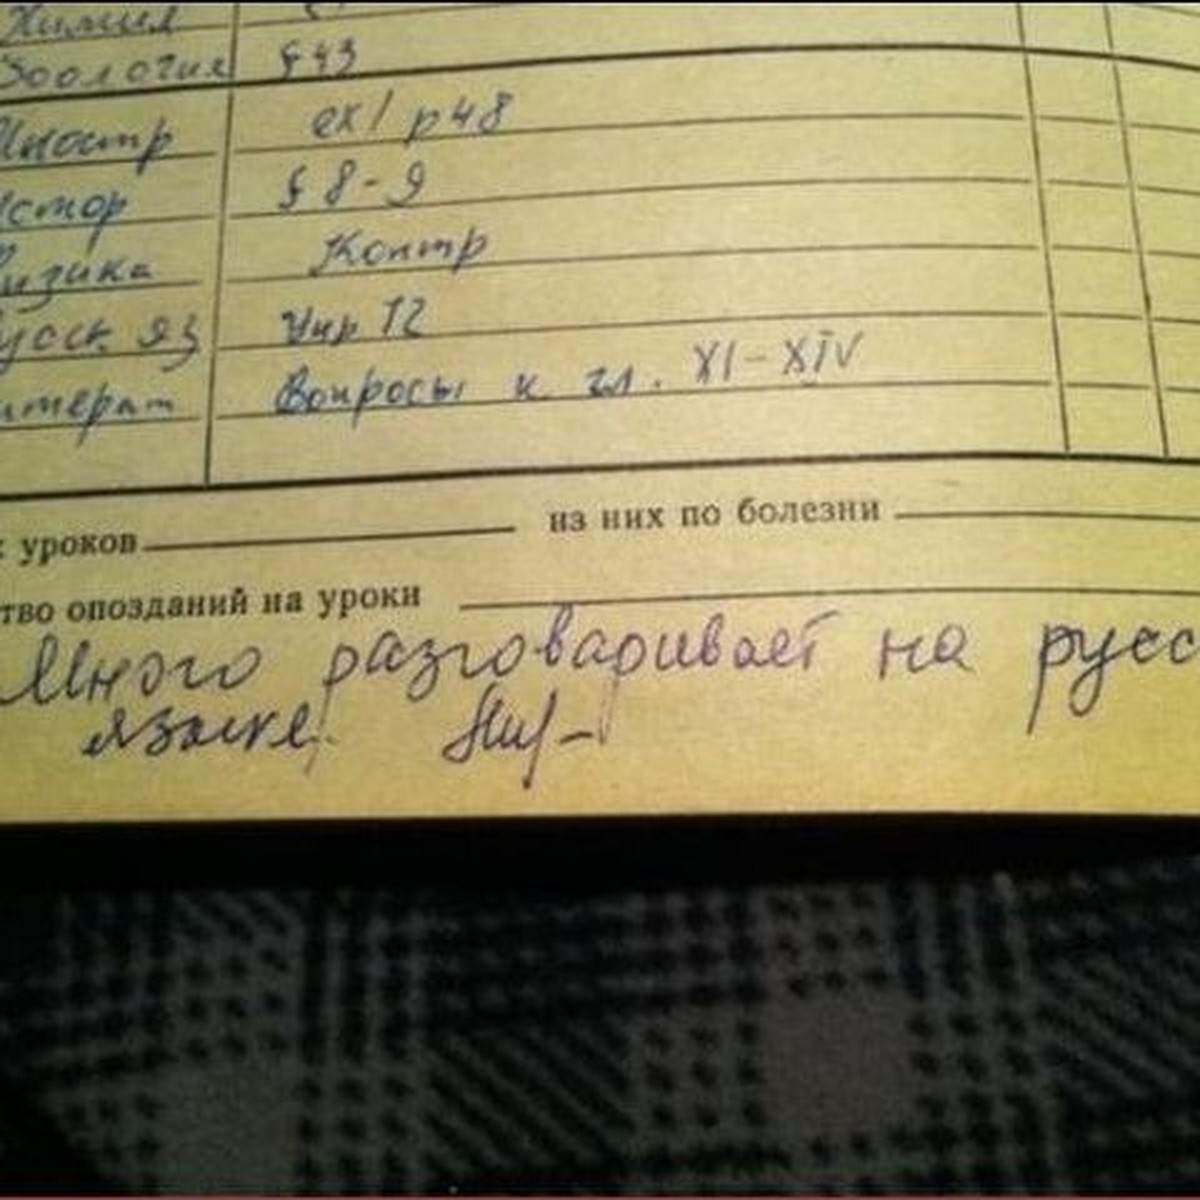 Химия
Зоология §43
Иностр ex1 p48
Истор § 8-9
Физика Контр
Русск яз Упр 12
итерат Вопросы к гл. XI-XIV
х уроков из них по болезни
тво опозданий на уроки
Много разговаривает на русс
языке